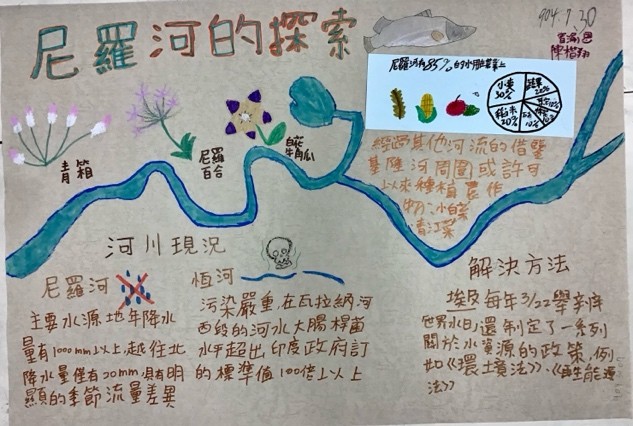 尼羅河的探索
904.7.30
尼羅河有85%的水用在農業上
小麥
30%
蔬果
20%
20%
10%
青箱
尼羅
百合
白花
牛角瓜
經過其他河流的借鑒
基隆河周圍或許可
以來種植農作
物:小白菜
青江菜
河川現況
尼羅河
主要水源地年降水
量有1000mm以上,越往北
降水量僅有20mm,具有明
顯的季節流量差異
恆河
污染嚴重,在瓦拉納河
西段的河水大腸桿菌
水平超出印度政府訂
的標準值100倍以上
解決方法
埃及每年3/22舉辦
世界水日還制定了一系列
關於水資源的政策,例
如《環境法》、《再生能源
法》